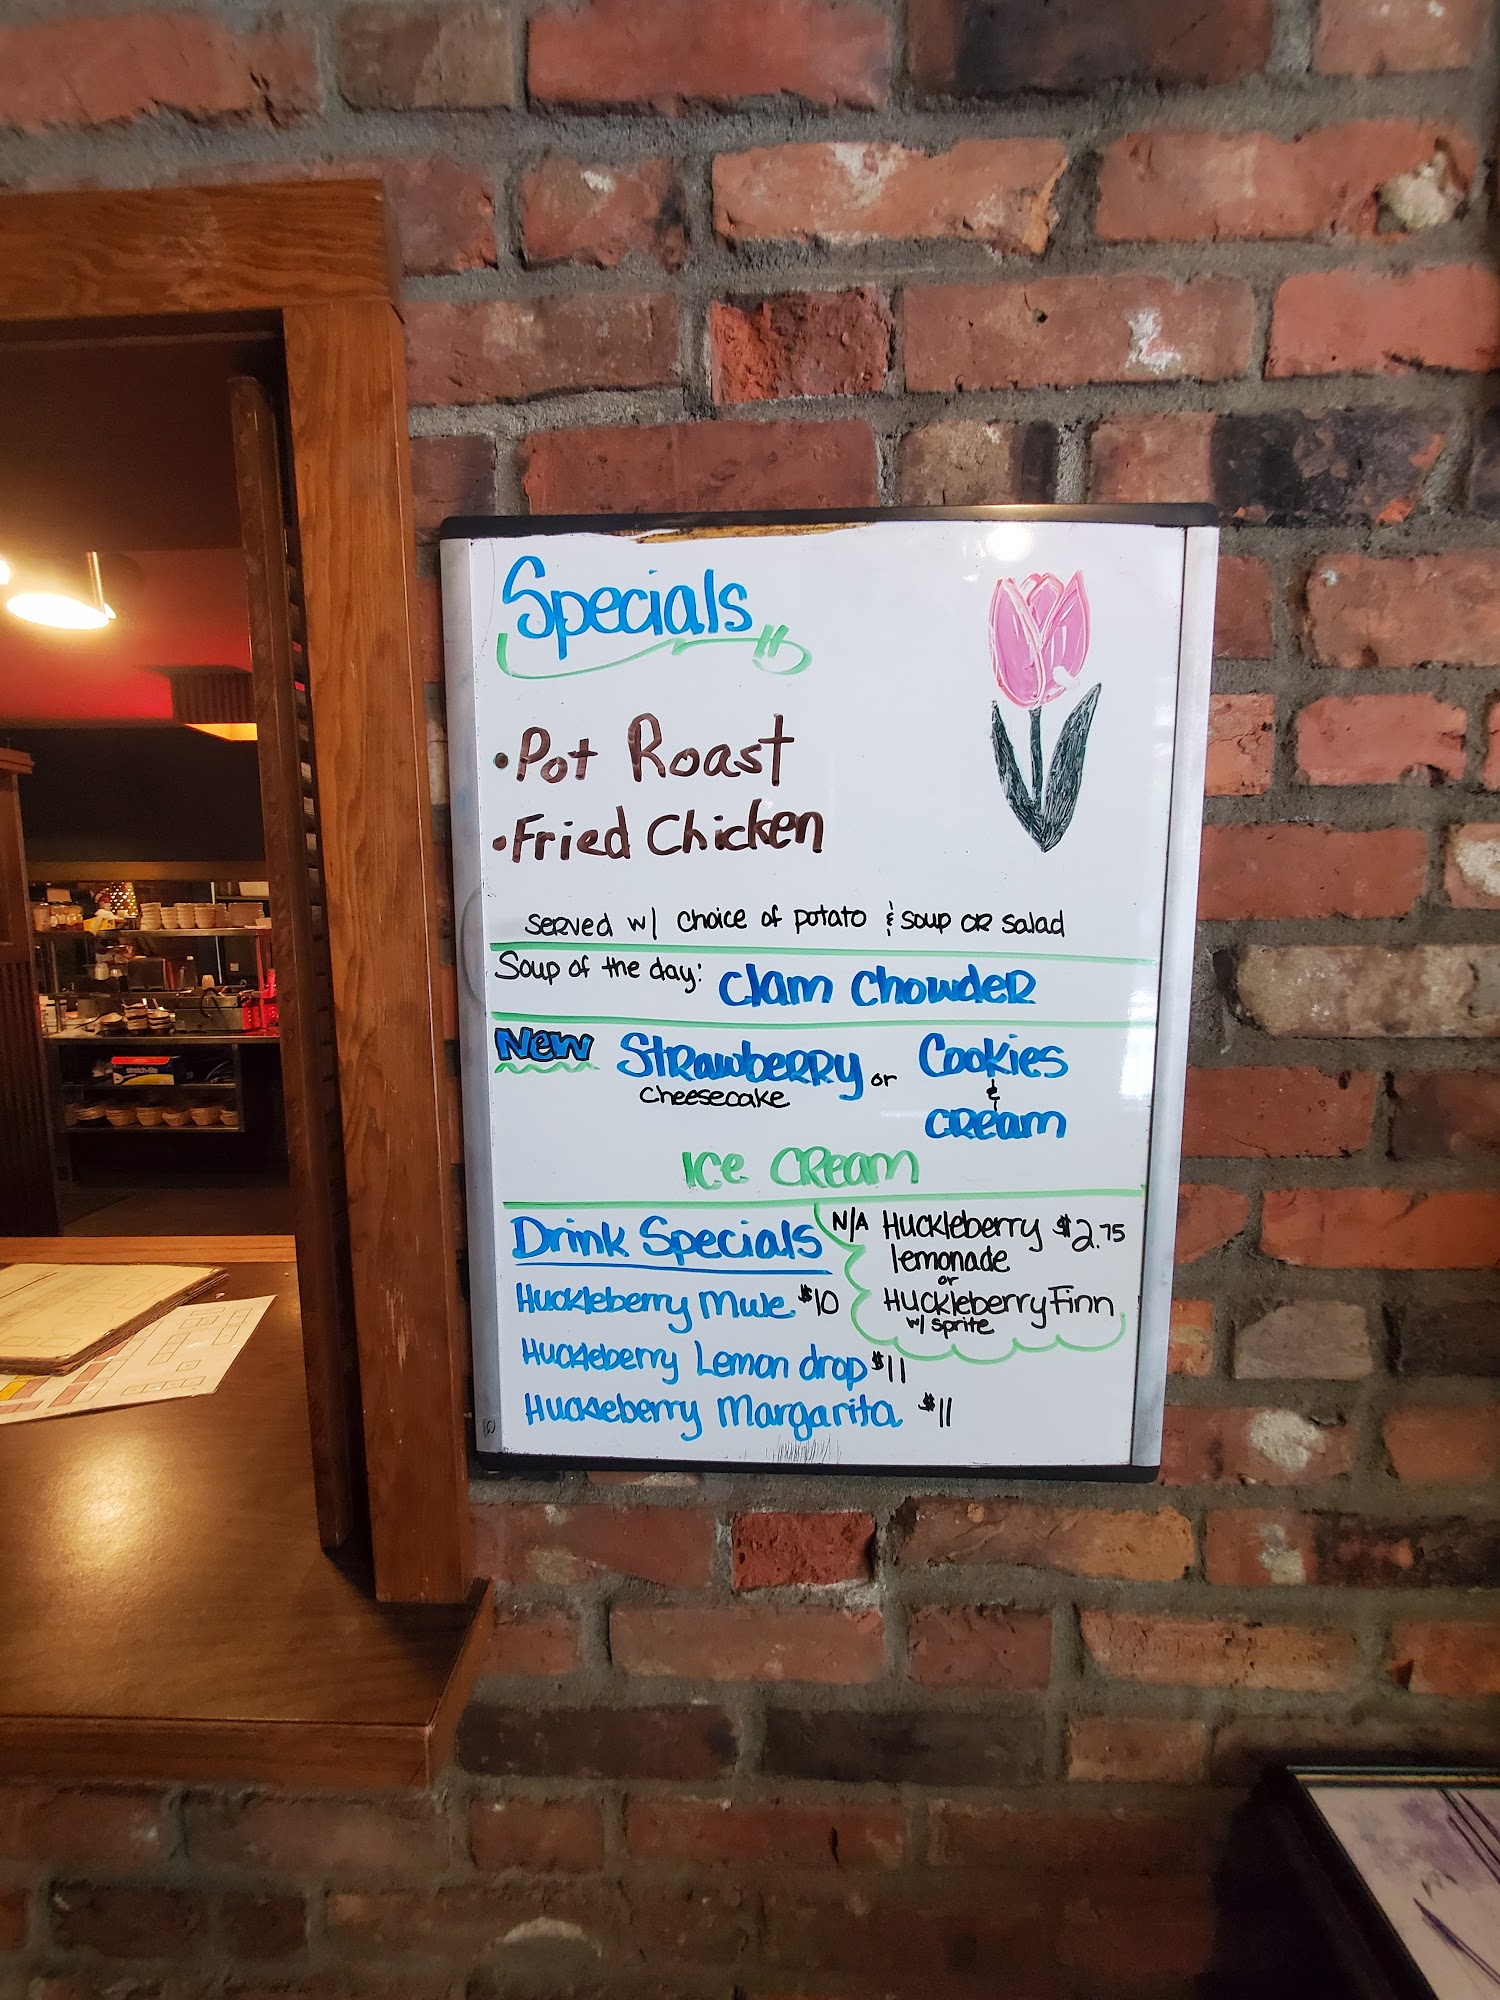 Specials
• Pot Roast
• Fried Chicken
served w/ choice of potato & soup or salad
Soup of the day: Clam Chowder
New Strawberry or Cookies
Cheesecake &
Cream
Ice Cream
Drink Specials
Huckleberry Mule $10
Huckleberry Lemon drop $11
Huckleberry Margarita $11
N/A Huckleberry $2.75
lemonade
or
Huckleberry Finn
w/ sprite
stretch-tite